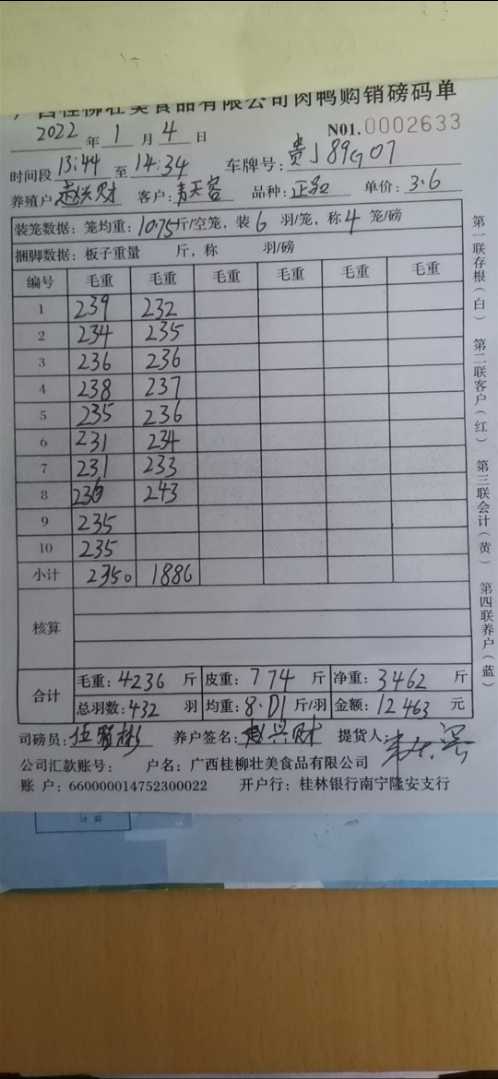 广西桂柳壮美食品有限公司肉鸭购销磅码单
2022年1月4日 NO1.0002633
时间段13:44至14:34 车牌号:贵J89G07
养殖户:赵兴财 客户: 品种:正品 单价:3.6
装笼数据:笼均重:10.75斤/空笼,装6羽/笼,称4笼/磅
捆脚数据:板子重量 斤,称 羽/磅
编号 毛重 毛重 毛重 毛重 毛重 毛重
1 239 232
2 234 235
3 236 236
4 238 237
5 235 236
6 231 234
7 231 233
8 236 243
9 235
10 235
小计 2350 1886
核算
合计 毛重:4236斤 皮重:774斤 净重:3462斤
总羽数:432羽 均重:8.01斤/羽 金额:12463元
司磅员:伍贤彬 养户签名:赵兴财 提货人:
公司汇款账号: 户名:广西桂柳壮美食品有限公司
账户:660000014752300022 开户行:桂林银行南宁隆安支行
第一联存根(白) 第二联客户(红) 第三联会计(黄) 第四联养户(蓝)